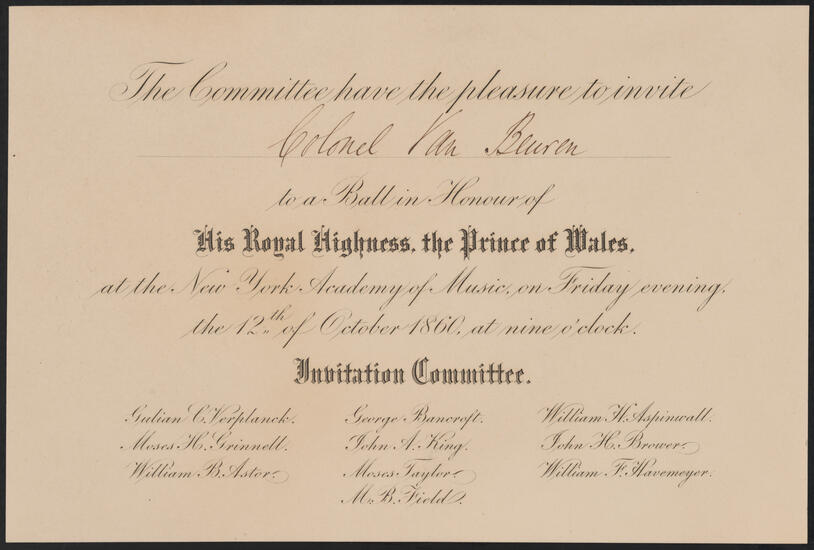 The Committee have the pleasure to invite
Colonel Van Beuren
to a Ball in Honour of
His Royal Highness, the Prince of Wales,
at the New York Academy of Music, on Friday evening,
the 12th of October 1860, at nine o'clock.
Invitation Committee.
Gulian C. Verplanck. George Bancroft. William H. Aspinwall.
Moses H. Grinnell. John A. King. John H. Brower.
William B. Astor. Moses Taylor. William F. Havemeyer.
M. B. Field.